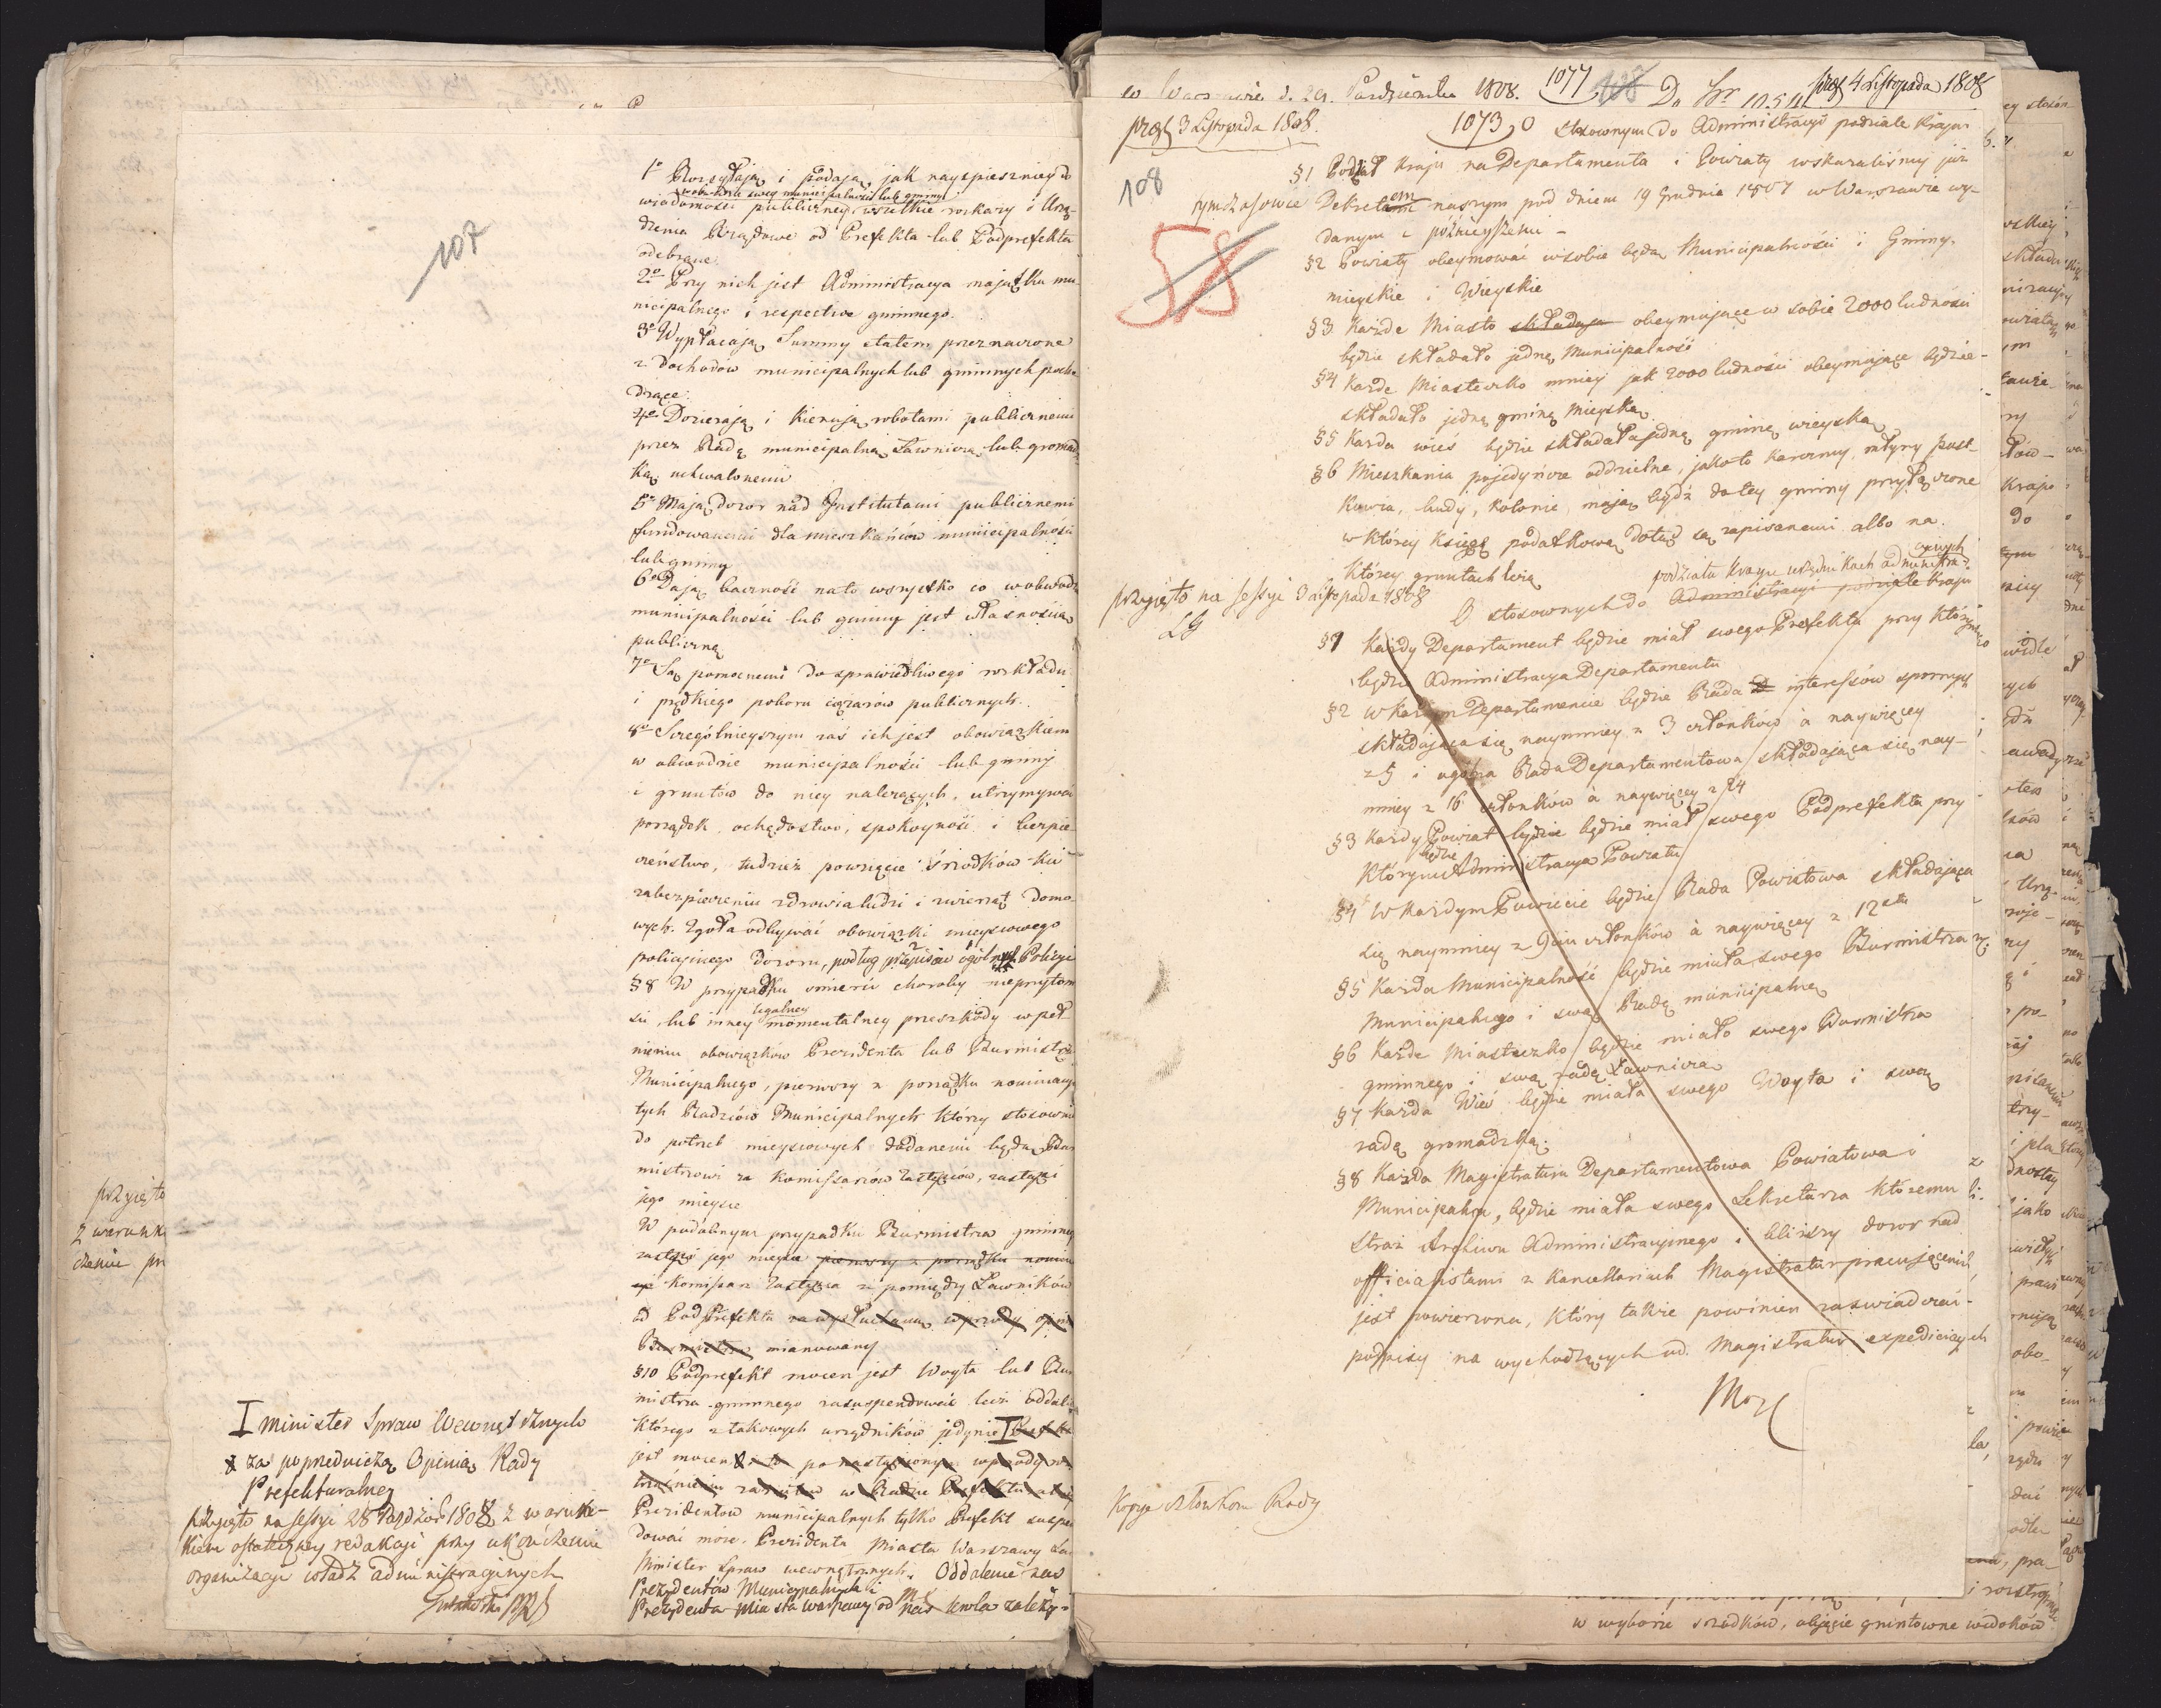 107
1º Rozsyłaią i podaią jak nayspieszniey do
w obwodzie swey municipalności lub gminy
wiadomości publiczney wszelkie rozkazy i Urzą-
dzenia Rządowe od Prefekta lub Podprefekta
odebrane.
2º Przy nich jest Administracya maiątku mu
nicipalnego i respective gminnego.
3º Wypłacaią Summy etatem przeznaczone
z dochodów municipalnych lub gminnych pocho
dzące.
4º Dozieraią i kieruią robotami publicznemi
przez Radę municipalną Ławniczą lub gromadz
ką uchwalonemi
5º Maią dozor nad Institutami publicznemi
fundowanemi dla mieszkańców municipalności
lub gminy
6º Daią baczność na to wszystko co w obwodzie
municipalności lub gminy jest własnością
publiczną
7º Są pomocnemi do sprawiedliwego rozkładu
i prędkiego poboru ciężarów publicznych.
8º Szczególnieyszym zaś ich jest obowiązkiem
w obwodzie municipalności lub gminy
i gruntów do niey należących, utrzymywać
porządek, ochędostwo, spokoyność i bezpie
czeństwo, tudzież powzięcie śrzodków ku
zabezpieczeniu zdrowia ludzi i zwierząt domo
wych. Zgoła odbywać obowiązki mieyscowego
policyinego dozoru, podług przepisów ogólnych Policyi
§8 W przypadku śmierci choroby nieprzytom
legalney
ści, lub inney momentalney przeszkody w peł
nieniu obowiązków Prezidenta lub Burmistrza
Municipalnego, pierwszy z porządku nominacyi
tych Radzców Municipalnych którzy stosownie
do potrzeb mieyscowych dodanemi będą Bur
mistrzowi za Komissarzów Zastęzców, zastąpi
jego mieysce
W podobnym przypadku Burmistrza gminney
zastąpi jego mieysce pierwszy z porządku nomina
cyi Komissarz Zastęzca z pomiędzy Ławników
od PodPrefekta za wysłuchaniem wprzody opinii
Burmistrza mianowany
§10 Podprefekt mocen jest Woyta lub Bur
mistrza gminnego zasuspendować lecz oddalić
którego z takowych urzędników jedynie I Prefekt
jest mocen
Prezidentów municipalnych tylko Prefekt suspen
dować może. Prezidenta Miasta Warszawy zaś
Minister Spraw wewnętrznych. Oddalenie zaś
Prezydentów Municypalnych i
Prezydenta Miasta Warszawy od Nas Krola zależy
I Minister Spraw Wewnętrznych
za poprzedniczą Opinią Rady
Prefekturalney
przyięto na sessyi 28 Pazdzier 1808 z warun-
kiem ostateczney redakcyi przy ukończeniu
organizacyi władz administracyinych
przyięto
z warunk
czeniu pr
w Warszawie d. 29. Pazdziernika 1808. 1077 108 Do Nr 1054 prez 4 Listopada 1808
prez 3 Listopada 1808. 1073, O stosownym do Administracyi podziale kraju
108
58
§1 Podział kraju na Departamenta i Powiaty wskazaliśmy już
tymczasowie Dekretem naszym pod dniem 19 Grudnia 1807 w Warszawie wy-
danym i poźnieyszemi -
§2 Powiaty obeymować w sobie będą Municipalności i Gminy
mieyskie i Wieyskie
§3 Każde Miasto składaja obeymuiące w sobie 2000 ludności
będzie składało jedną Municipalność
§4 Każde Miasteczko mniey jak 2000 ludności obeymuiące będzie-
składało jedną gminę Mieyską.
§5 Każda wieś będzie składała jedną gminę wieyską
§6 Mieszkania pojedyńcze oddzielne, jako to karczmy, młyny pust-
kowia, budy, kolonie, maią bydź do tey gminy przyłączone
w którey księgę podatkową dotąd są zapisanemi albo na
którey gruntach leżą
przyięto na sessyi 3 Listopada 1808
LG
podziału kraju urzędnikach administra-
cyinych
O stosownych do Administracyi podziale kraju
§1 Każdy Departament będzie miał swego Prefekta przy którym
będzie Administracya Departamentu
§2 W każdym Departamencie będzie Rada interessów spornych
składaiąca się naymniey z 3 członków a naywięcey
z 5 i ogólna Rada Departamentowa składaiąca się nay-
mniey z 16 członków à naywięcey z 24
§3 Każdy Powiat będzie będzie miał swego Podprefekta przy
będzie
którym Administracya Powiatu
§4 W każdym Powiecie będzie Rada Powiatowa składaiąca
się naymniey z 9ciu członków à naywięcey z 12stu
§5 Każda Municipalność będzie miała swego Burmistrza
Municipalnego i swą Radę municipalną
§6 Każde Miasteczko będzie miało swego Burmistrza
gminnego i swą radę Ławniczą
§7 Każda Wieś będzie miała swego Woyta i swą
radę gromadzką.
§8 Każda Magistratura Departamentowa Powiatowa i
Municipalna, będzie miała swego Sekretarza któremu
straż Archiwu Administracyinego i bliższy dozor nad
officialistami z kancellariach Magistratur pracuiącemi,
jest powierzona, który także powinien zaświadczać
podpisy na wychodzących od Magistratur expedicyach
Kopije członkom Rady
w wyborze srzodków, obięcie gruntowne widoków